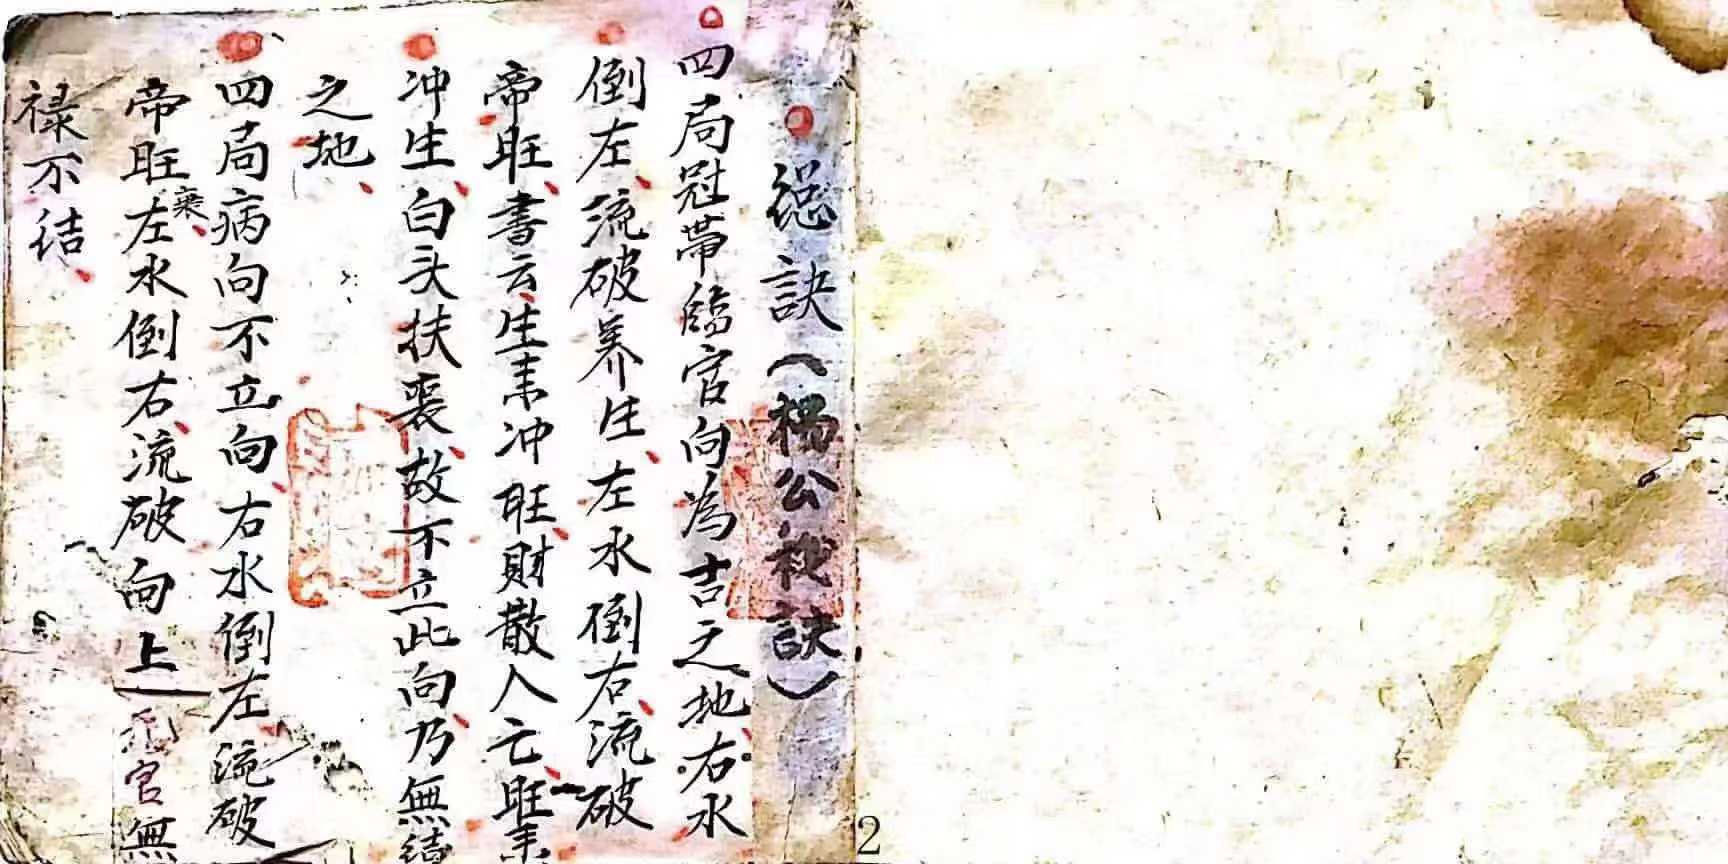 總訣（楊公秘訣）
四局冠帶臨官向為吉之地、右水
倒左、流破养生、左水倒右、流破
帝旺、書云、生来冲旺、財散人亡、旺来
冲生、白头扶喪、故不立此向、乃無结
之地、
四局病向不立向、右水倒左、流破
帝旺衰、左水倒右、流破向上 官無
禄不结、
2